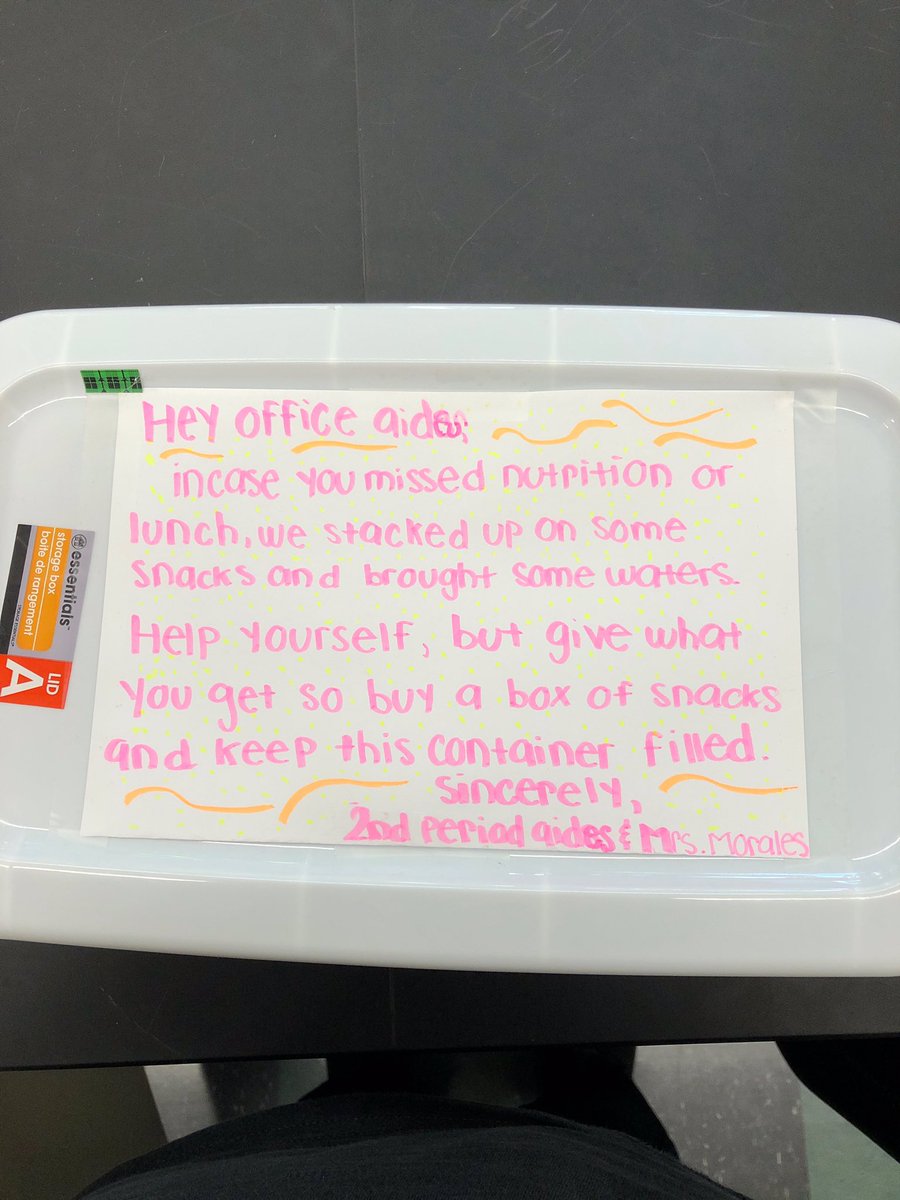 Hey office aides,
incase you missed nutrition or
lunch, we stacked up on some
snacks and brought some waters.
Help yourself, but give what
you get so buy a box of snacks
and keep this container filled.
Sincerely,
2nd period aides & Mrs. Morales
essentials™
storage box
boîte de rangement
LID
A